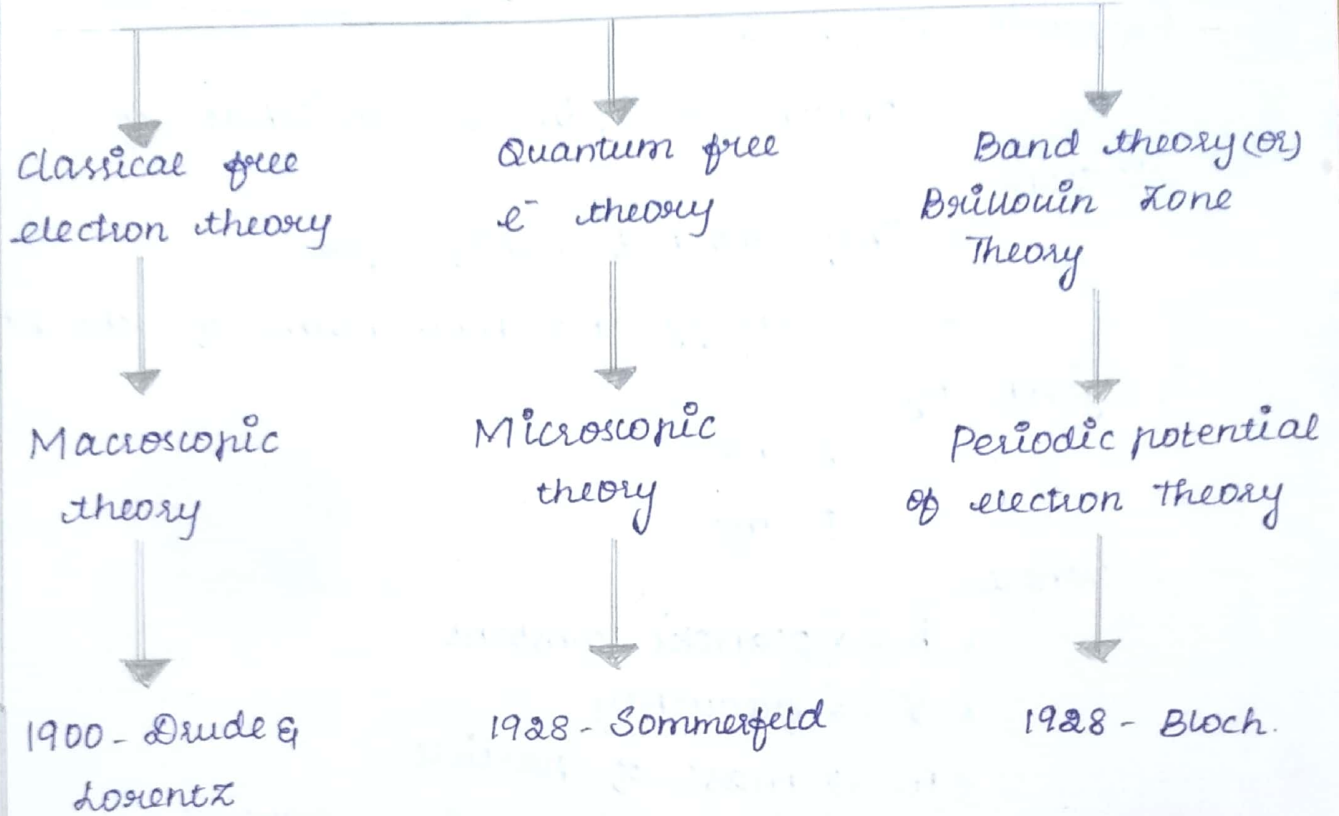 Classical free
electron theory
Macroscopic
theory
1900 - Drude &
Lorentz
Quantum free
e⁻ theory
Microscopic
theory
1928 - Sommerfeld
Band theory (or)
Brillouin Zone
Theory
Periodic potential
of electron Theory
1928 - Bloch.